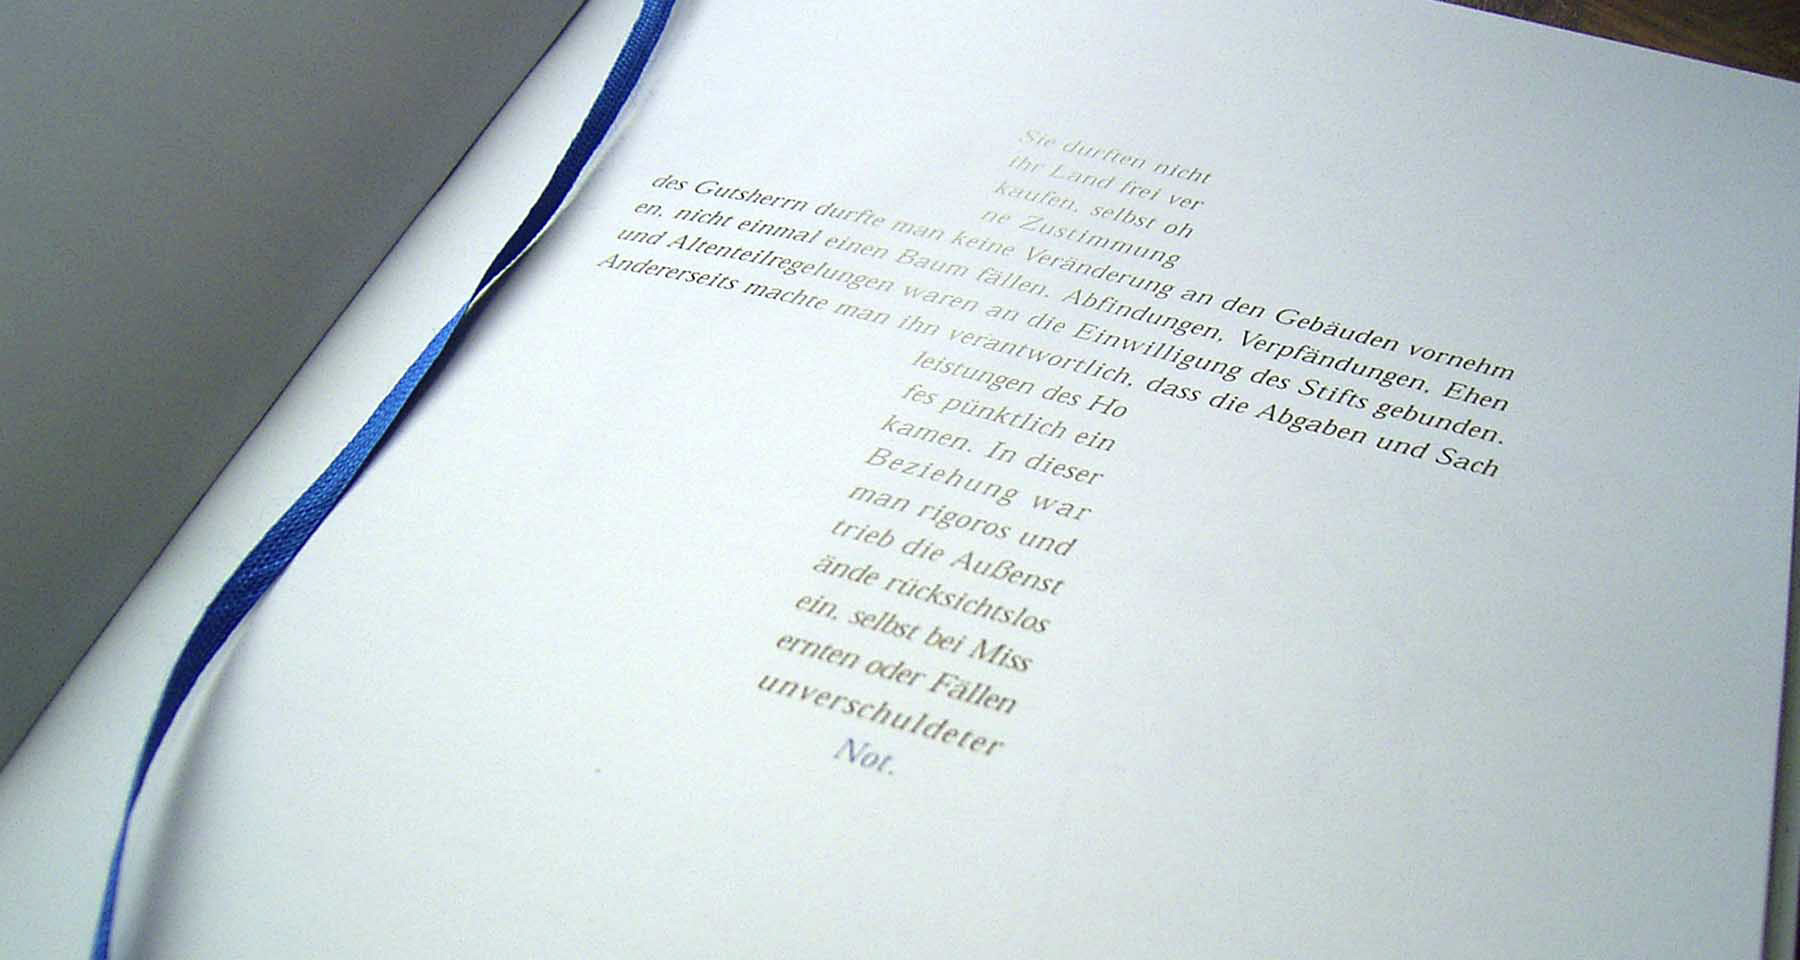 Sie durften nicht
ihr Land frei ver
kaufen, selbst oh
ne Zustimmung
des Gutsherrn durfte man keine Veränderung an den Gebäuden vornehm
en, nicht einmal einen Baum fällen. Abfindungen, Verpfändungen, Ehen
und Altenteilregelungen waren an die Einwilligung des Stifts gebunden.
Andererseits machte man ihn verantwortlich, dass die Abgaben und Sach
leistungen des Ho
fes pünktlich ein
kamen. In dieser
Beziehung war
man rigoros und
trieb die Außenst
ände rücksichtslos
ein, selbst bei Miss
ernten oder Fällen
unverschuldeter
Not.